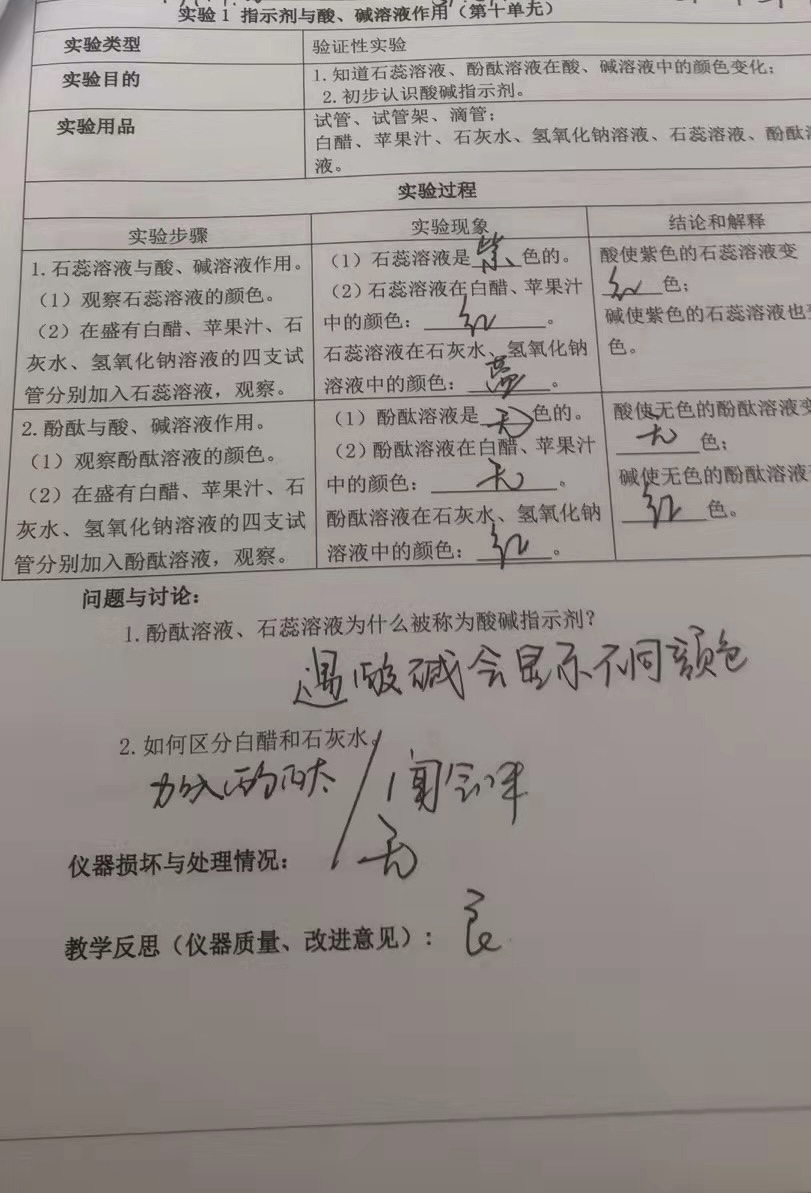 实验1 指示剂与酸、碱溶液作用（第十单元）
实验类型 验证性实验
实验目的 1.知道石蕊溶液、酚酞溶液在酸、碱溶液中的颜色变化；
2.初步认识酸碱指示剂。
实验用品 试管、试管架、滴管；
白醋、苹果汁、石灰水、氢氧化钠溶液、石蕊溶液、酚酞
液。
实验过程
实验步骤 实验现象 结论和解释
1.石蕊溶液与酸、碱溶液作用。
（1）观察石蕊溶液的颜色。
（2）在盛有白醋、苹果汁、石
灰水、氢氧化钠溶液的四支试
管分别加入石蕊溶液，观察。
（1）石蕊溶液是紫色的。
（2）石蕊溶液在白醋、苹果汁
中的颜色：红。
石蕊溶液在石灰水、氢氧化钠
溶液中的颜色：蓝。
酸使紫色的石蕊溶液变
红色；
碱使紫色的石蕊溶液也
色。
2.酚酞与酸、碱溶液作用。
（1）观察酚酞溶液的颜色。
（2）在盛有白醋、苹果汁、石
灰水、氢氧化钠溶液的四支试
管分别加入酚酞溶液，观察。
（1）酚酞溶液是无色的。
（2）酚酞溶液在白醋、苹果汁
中的颜色：无。
酚酞溶液在石灰水、氢氧化钠
溶液中的颜色：红。
酸使无色的酚酞溶液变
无色；
碱使无色的酚酞溶液
红色。
问题与讨论：
1.酚酞溶液、石蕊溶液为什么被称为酸碱指示剂？
遇酸碱会显示不同颜色
2.如何区分白醋和石灰水。
加入酚酞/闻气味
仪器损坏与处理情况： 无
教学反思（仪器质量、改进意见）： 良